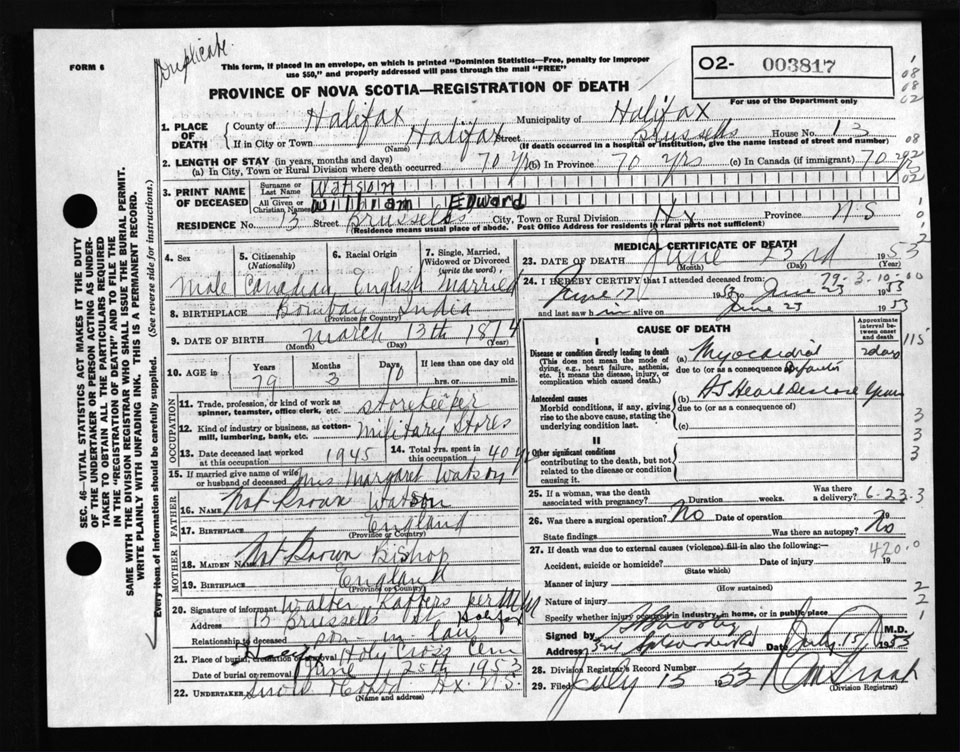 Duplicate.
FORM 6
This form, if placed in an envelope, on which is printed "Dominion Statistics—Free, penalty for improper
use $50," and properly addressed will pass through the mail "FREE"
O2- 003817
For use of the Department only
PROVINCE OF NOVA SCOTIA—REGISTRATION OF DEATH
1. PLACE OF DEATH { County of Halifax Municipality of Halifax
If in City or Town Halifax Street Brussells House No. 13
(Name) (If death occurred in a hospital or institution, give the name instead of street and number)
2. LENGTH OF STAY (in years, months and days)
(a) In City, Town or Rural Division where death occurred 70 yrs (b) In Province 70 yrs (c) In Canada (if immigrant) 70
3. PRINT NAME OF DECEASED { Surname or Last Name Watson
All Given or Christian Names William Edward
RESIDENCE No. 13 Street Brussells City, Town or Rural Division Hx Province N S
(Residence means usual place of abode. Post Office Address for residents in rural parts not sufficient)
4. Sex 5. Citizenship (Nationality) 6. Racial Origin 7. Single, Married, Widowed or Divorced (write the word)
Male Canadian English Married
8. BIRTHPLACE Bombay India
(Province or Country)
9. DATE OF BIRTH March 13th 1874
(Month) (Day) (Year)
10. AGE in { Years Months Days If less than one day old
79 3 10 hrs. or min.
OCCUPATION
11. Trade, profession, or kind of work as spinner, teamster, office clerk, etc. storekeeper
12. Kind of industry or business, as cotton-mill, lumbering, bank, etc. Military Stores
13. Date deceased last worked at this occupation 1945 14. Total yrs. spent in this occupation 40
15. If married give name of wife or husband of deceased Mrs Margaret Watson
FATHER
16. NAME Not Known Watson
17. BIRTHPLACE England
(Province or Country)
MOTHER
18. MAIDEN NAME Not Known Bishop
19. BIRTHPLACE England
(Province or Country)
20. Signature of informant Walter per
Address 13 Brussells St Halifax
Relationship to deceased son-in law
21. Place of burial, cremation or removal Holy Cross Cem
Date of burial or removal June 25th 1953
22. UNDERTAKER Snow Hx. N.S.
(Name and address)
MEDICAL CERTIFICATE OF DEATH
23. DATE OF DEATH June 23rd 1953
(Month) (Day) (Year)
79-3-10-00
24. I HEREBY CERTIFY that I attended deceased from:
June 1953 to June 23 1953
and last saw him alive on June 23 1953
CAUSE OF DEATH
Approximate interval between onset and death
I
Disease or condition directly leading to death (a) Myocardial 2 days
(This does not mean the mode of dying, e.g., heart failure, asthenia, etc. It means the disease, injury, or complication which caused death.)
due to (or as a consequence of)
Antecedent causes (b) AS Heart Disease
Morbid conditions, if any, giving rise to the above cause, stating the underlying condition last.
due to (or as a consequence of)
(c)
II
Other significant conditions
contributing to the death, but not related to the disease or condition causing it.
25. If a woman, was the death associated with pregnancy? Duration weeks. Was there a delivery? 6-23-3
26. Was there a surgical operation? No Date of operation 19
State findings Was there an autopsy? No
27. If death was due to external causes (violence) fill in also the following:— 420.0
Accident, suicide or homicide? Date of injury 19
(State which)
Manner of injury
(How sustained)
Nature of injury
Specify whether injury occurred in industry, in home, or in public place
Signed by M.D.
Address Date July 15 1953
28. Division Registrar's Record Number
29. Filed July 15 1953
(Division Registrar)
SEC. 46—VITAL STATISTICS ACT MAKES IT THE DUTY
OF THE UNDERTAKER OR PERSON ACTING AS UNDER-
TAKER TO OBTAIN ALL THE PARTICULARS REQUIRED
IN THE "REGISTRATION OF DEATH" AND TO FILE THE
SAME WITH THE DIVISION REGISTRAR WHO SHALL ISSUE THE BURIAL PERMIT.
WRITE PLAINLY WITH UNFADING INK. THIS IS A PERMANENT RECORD.
Every item of information should be carefully supplied. (See reverse side for instructions.)